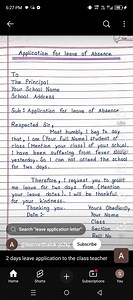 5:27 PM
Application for leave of Absence
To
The Principal
Your School Name
School Address
Sub: Application for leave of Absence
Respected Sir,
Most humbly I beg to say
that, I am [Your Full Name] student of
class [Mention your class] of your school.
I have been suffering from fever since
yesterday. So I can not attend the school
for two days.
Therefore, I request you to grant
me leave for two days from [Mention
your leave dates]. I will be thankful
for your kindness.
Thanking you.
Yours Obediently,
Date :-
Your Name
Class
Section
Search "leave application letter"
Subscribe
2 days leave application to the class teacher
Home
Shorts
Subscriptions
You